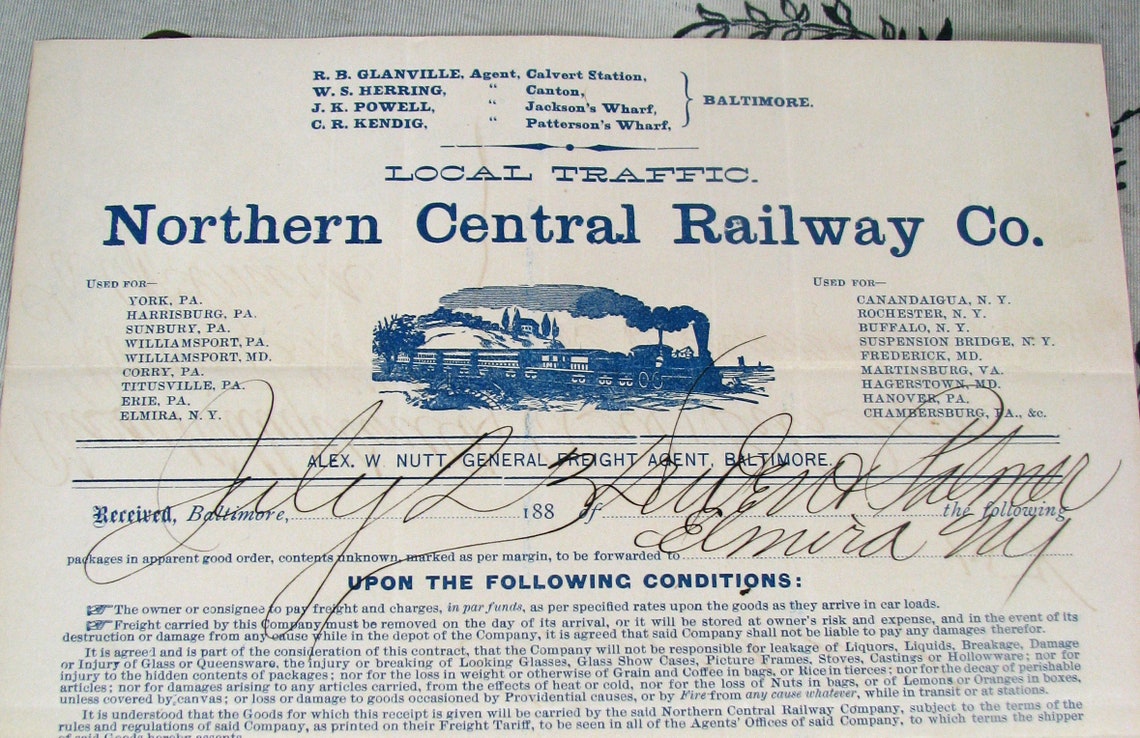 R. B. GLANVILLE, Agent, Calvert Station,
W. S. HERRING, " Canton,
J. K. POWELL, " Jackson's Wharf,
C. R. KENDIG, " Patterson's Wharf,
BALTIMORE.
LOCAL TRAFFIC.
Northern Central Railway Co.
USED FOR—
YORK, PA.
HARRISBURG, PA.
SUNBURY, PA.
WILLIAMSPORT, PA.
WILLIAMSPORT, MD.
CORRY, PA.
TITUSVILLE, PA.
ERIE, PA.
ELMIRA, N. Y.
USED FOR—
CANANDAIGUA, N. Y.
ROCHESTER, N. Y.
BUFFALO, N. Y.
SUSPENSION BRIDGE, N. Y.
FREDERICK, MD.
MARTINSBURG, VA.
HAGERSTOWN, MD.
HANOVER, PA.
CHAMBERSBURG, PA., &c.
ALEX. W. NUTT, GENERAL FREIGHT AGENT, BALTIMORE.
Received, Baltimore, July 23 188 of Palmer the following
packages in apparent good order, contents unknown, marked as per margin, to be forwarded to Elmira NY
UPON THE FOLLOWING CONDITIONS:
☞ The owner or consignee to pay freight and charges, in par funds, as per specified rates upon the goods as they arrive in car loads.
☞ Freight carried by this Company must be removed on the day of its arrival, or it will be stored at owner's risk and expense, and in the event of its
destruction or damage from any cause while in the depot of the Company, it is agreed that said Company shall not be liable to pay any damages therefor.
It is agreed and is part of the consideration of this contract, that the Company will not be responsible for leakage of Liquors, Liquids, Breakage, Damage
or Injury of Glass or Queensware, the injury or breaking of Looking Glasses, Glass Show Cases, Picture Frames, Stoves, Castings or Hollowware; nor for
injury to the hidden contents of packages; nor for the loss in weight or otherwise of Grain and Coffee in bags, or Rice in tierces; nor for the decay of perishable
articles; nor for damages arising to any articles carried, from the effects of heat or cold, nor for the loss of Nuts in bags, or of Lemons or Oranges in boxes,
unless covered by canvas; or loss or damage to goods occasioned by Providential causes, or by Fire from any cause whatever, while in transit or at stations.
It is understood that the Goods for which this receipt is given will be carried by the said Northern Central Railway Company, subject to the terms of the
rules and regulations of said Company, as printed on their Freight Tariff, to be seen in all of the Agents' Offices of said Company, to which terms the shipper
of said Goods hereby assents.